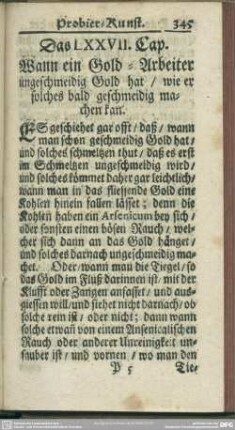 Probier-Kunst. 345
Das LXXVII. Cap.
Wann ein Gold-Arbeiter
ungeschmeidig Gold hat / wie er
solches bald geschmeidig ma-
chen kan.
ES geschiehet gar offt / daß / wann
man schon geschmeidig Gold hat /
und solches schmeltzen thut / daß es erst
im Schmeltzen ungeschmeidig wird /
und solches kömmet daher gar leichtlich /
wann man in das fliessende Gold eine
Kohlen hinein fallen lässet; denn die
Kohlen haben ein Arsenicum bey sich /
oder sonsten einen bösen Rauch / wel-
cher sich dann an das Gold hänget /
und solches darnach ungeschmeidig ma-
chet. Oder wann man die Tiegel / so
das Gold im Fluß darinnen ist / mit der
Klufft oder Zangen anfasset / und aus-
giessen will / und siehet nicht darnach / ob
solche rein ist / oder nicht; dann wann
solche etwan von einem Arsenicalischen
Rauch oder anderer Unreinigkeit un-
sauber ist / und vornen / wo man den
Y 5 Tie-